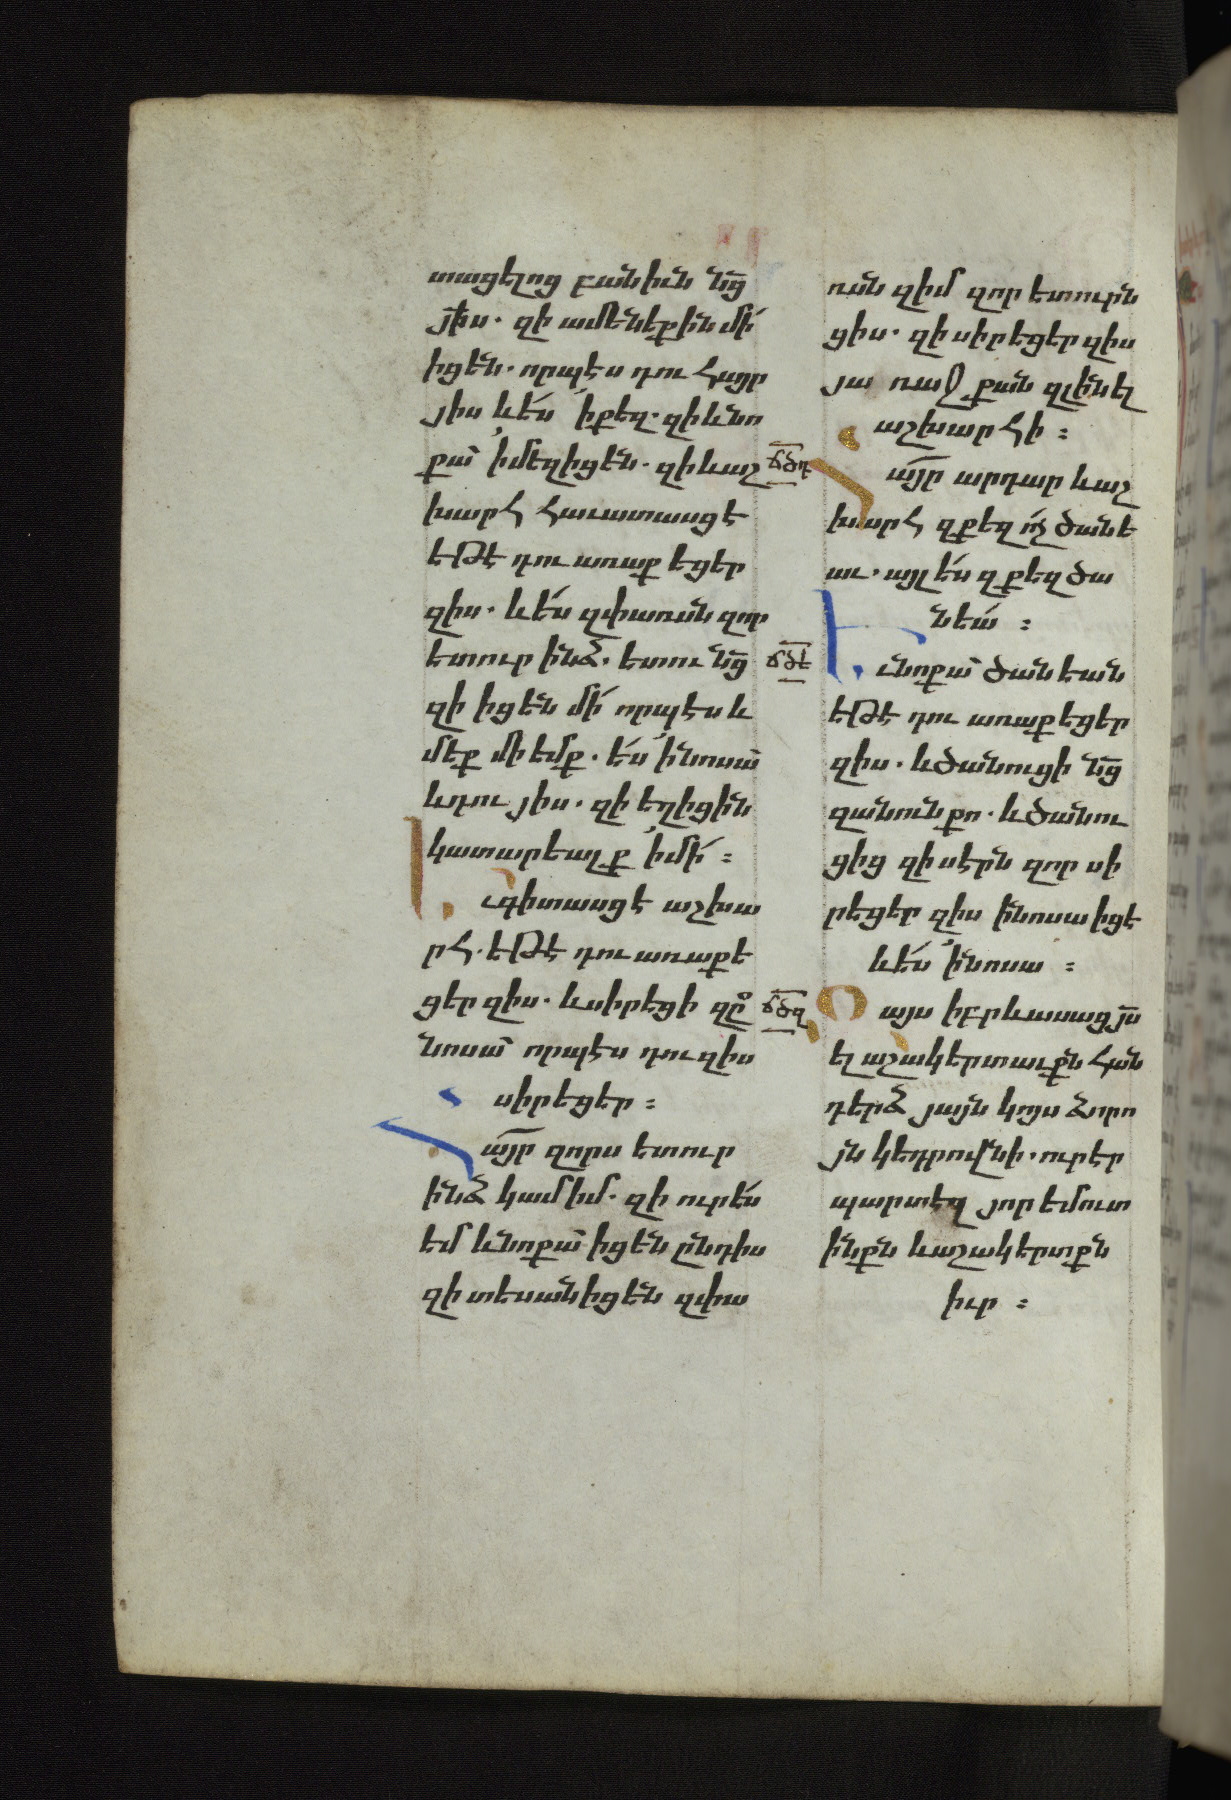 տացելոց բանիւն նց
յիս. զի ամենեքին մի
իցեն. որպէս դու հայր
յիս և ես ՛ի քեզ. զի և նո
քա ՛ի մեզ իցեն. զի և աշ
խարհ հաւատասցէ
եթէ դու առաքեցեր
զիս. և ես զփառսն զոր
ետուր ինձ. ետու նց
զի իցեն մի որպէս և
մեք մի եմք. ես ՛ի նոսա
և դու յիս. զի եղիցին
կատարեալք ՛ի մի :
Եւ գիտասցէ աշխա
րհ. եթէ դու առաքե
ցեր զիս. և սիրեցի զը
նոսա որպէս դու զիս
սիրեցեր :
Հայր զորս ետուր
ինձ կամ իմ. զի ուր ես
եմ և նոքա իցեն ընդ իս
զի տեսանիցեն զփա
ռսն զիմ զոր ետուրն
ցիս. զի սիրեցեր զիս
յառաջ քան զլինել
աշխարհի :
ճծդ
Հայր արդար և աշ
խարհ զքեզ ոչ ծանե
աւ. այլ ես զքեզ ծա
նեա :
ճծե
Եւ նոքա ծանեան
եթէ դու առաքեցեր
զիս. և ծանուցի նց
զանուն քո. և ծանու
ցից զի սէրն զոր սի
րեցեր զիս ՛ի նոսա իցէ
և ես ՛ի նոսա :
ճծզ
Զայս իբրև ասաց յս
ել աշակերտաւքն հան
դերձ յայն կոյս ձորո
յն կեդրովնի. ուր էր
պարտեզ յոր եմուտ
ինքն և աշակերտքն
իւր :